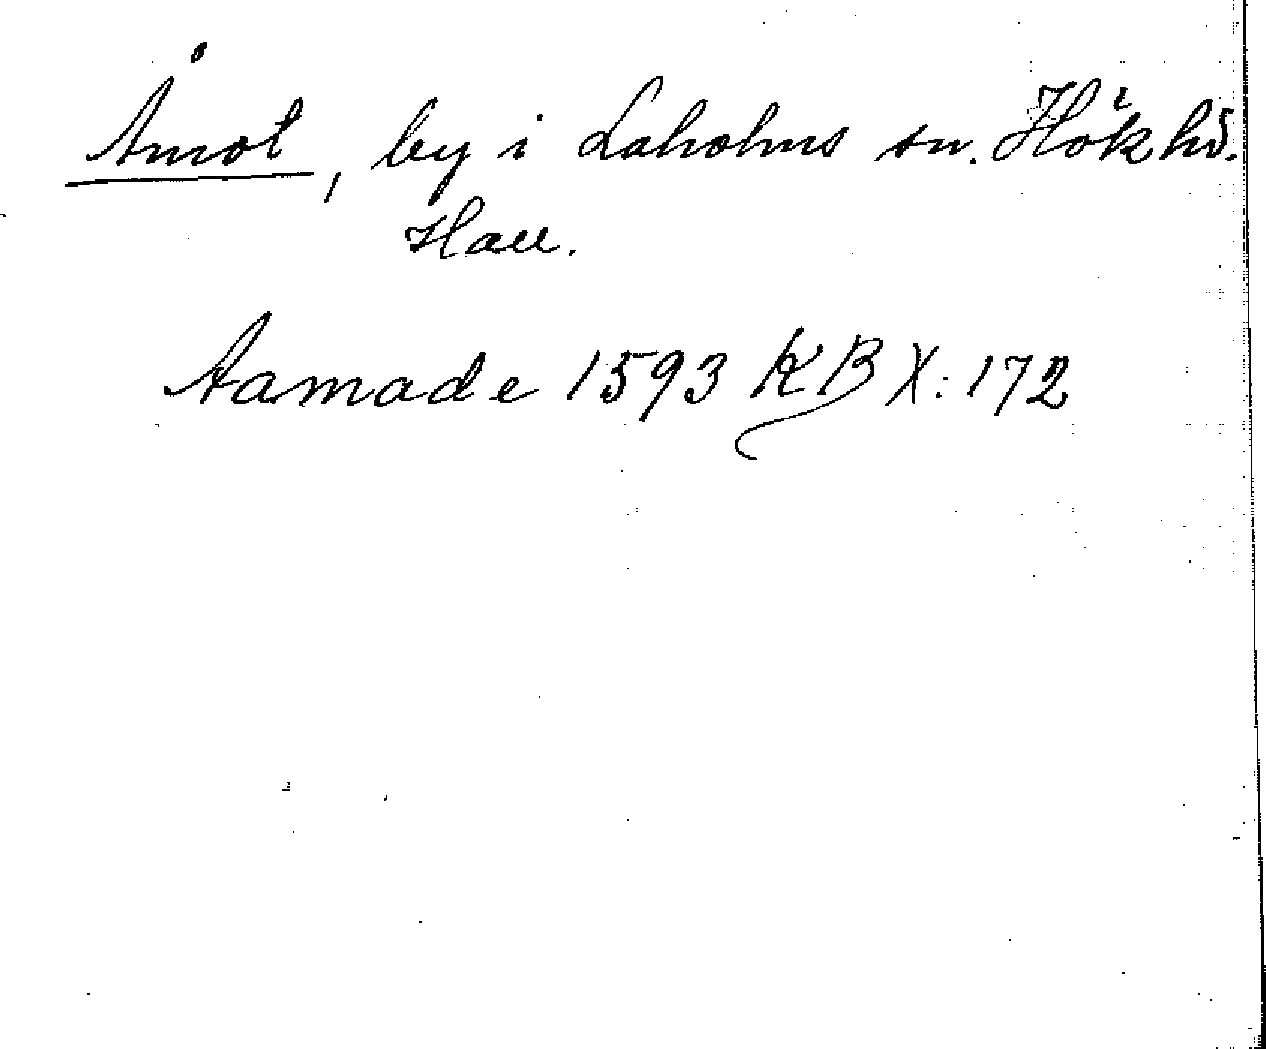 Åmot, by i Laholms sn. Hök hd.
Hall.
Aamade 1593 KB X: 172